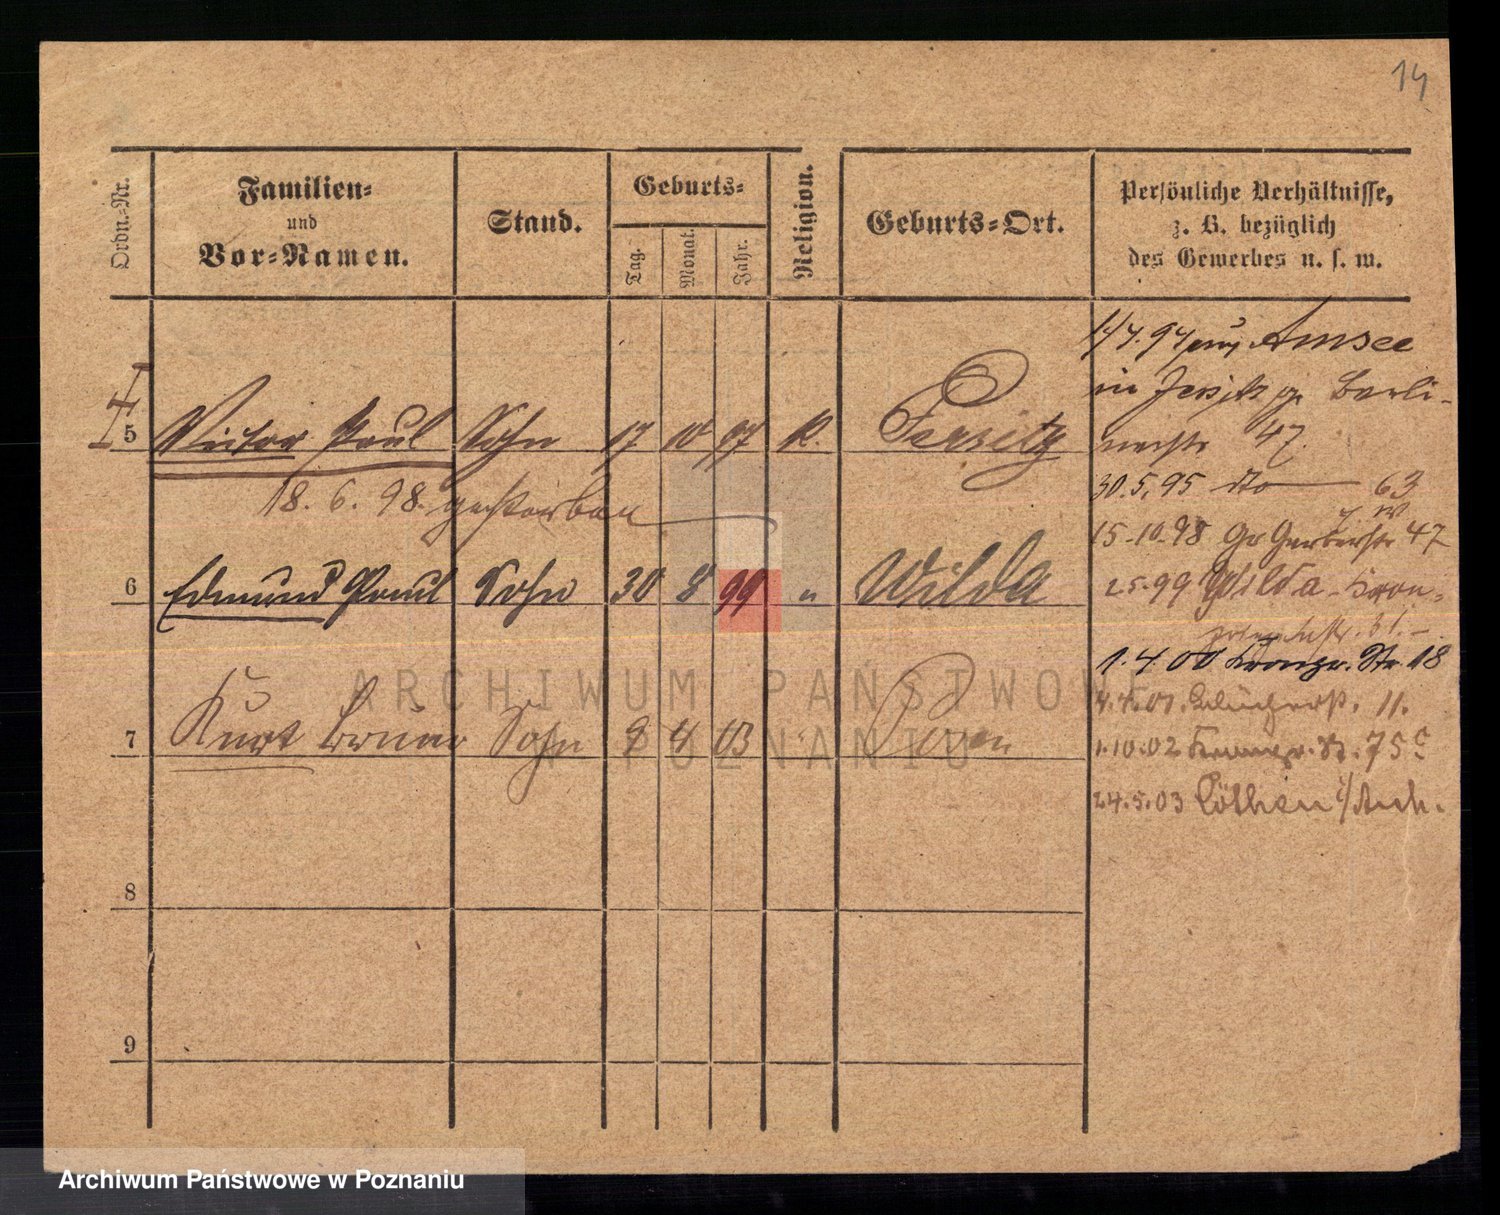 14
Ordn.-Nr.
Familien-
und
Vor-Namen.
Stand.
Geburts-
Tag.
Monat.
Jahr.
Religion.
Geburts-Ort.
Persönliche Verhältnisse,
z. B. bezüglich
des Gewerbes u. s. w.
5 Victor Paul Sohn 17 10 97 K. Jersitz
18. 6. 98. gestorben
6 Edmund Paul Sohn 30 8 99 " Wilda
7 Kurt Bruno Sohn 9 4 03 " Posen
8
9
Amsee
in Jersitz Berli-
nerstr 47.
30.5.95 dto 63
15.10.98 Gr Gerberstr 47
2.5.99 Wilda - Kron-
1.4.00 Kronpr. Str. 18
4.4.01. 11.
1.10.02 Kronpr. Str. 75c
24.5.03 Cöthen i/Anh.
ARCHIWUM PAŃSTWOWE
W POZNANIU
Archiwum Państwowe w Poznaniu